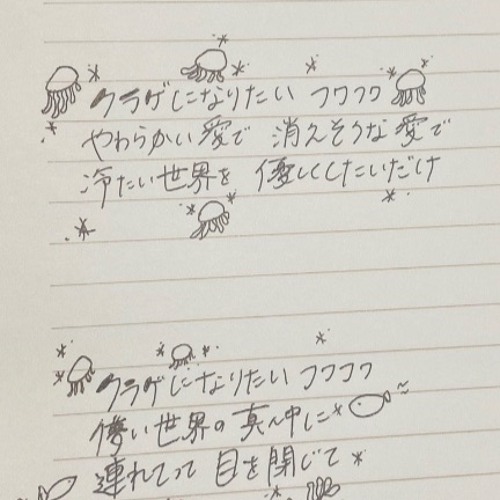 クラゲになりたい フワフワ
やわらかい愛で 消えそうな愛で
冷たい世界を 優しくしたいだけ
クラゲになりたい フワフワ
儚い世界の真ん中に
連れてって 目を閉じて